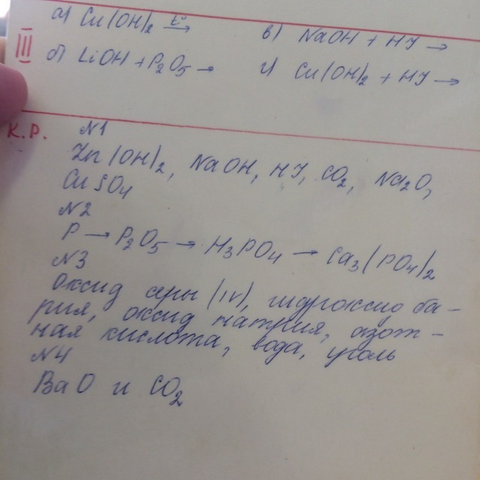 III
а) Cu(OH)₂ t° →
в) NaOH + HJ →
б) LiOH + P₂O₅ →
г) Cu(OH)₂ + HJ →
К.Р. N1
Zn(OH)₂, NaOH, HJ, CO₂, Na₂O,
CuSO₄
N2
P → P₂O₅ → H₃PO₄ → Ca₃(PO₄)₂
N3
Оксид серы (IV), гидроксид ба-
рия, оксид натрия, азот-
ная кислота, вода, уголь
N4
BaO и CO₂